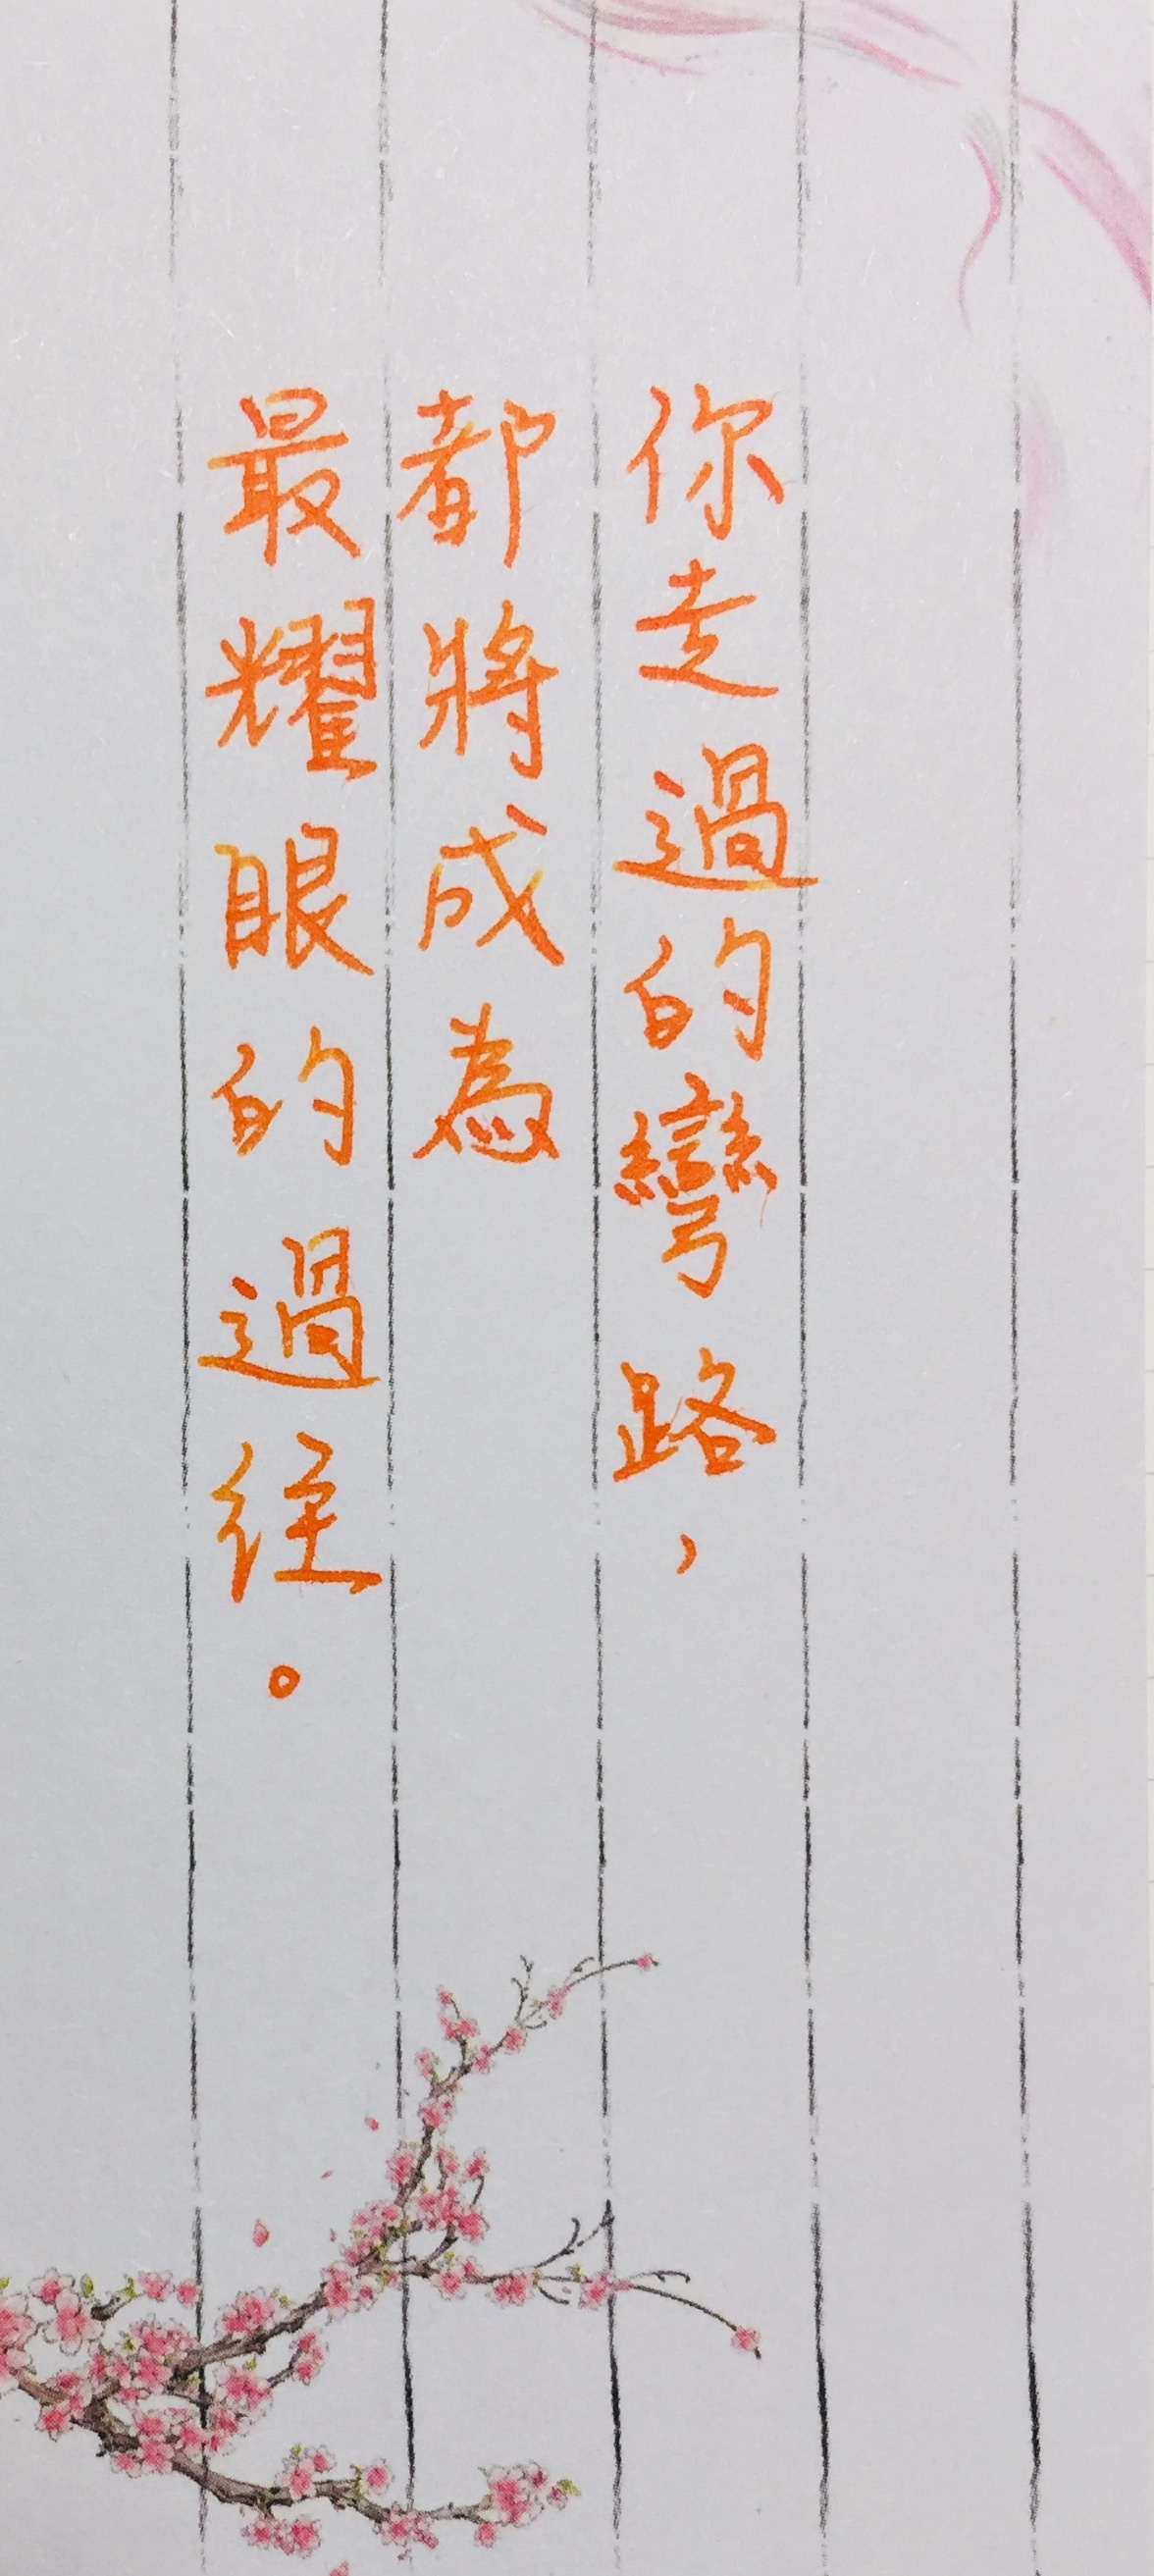 你走過的彎路，
都將成為
最耀眼的過往。